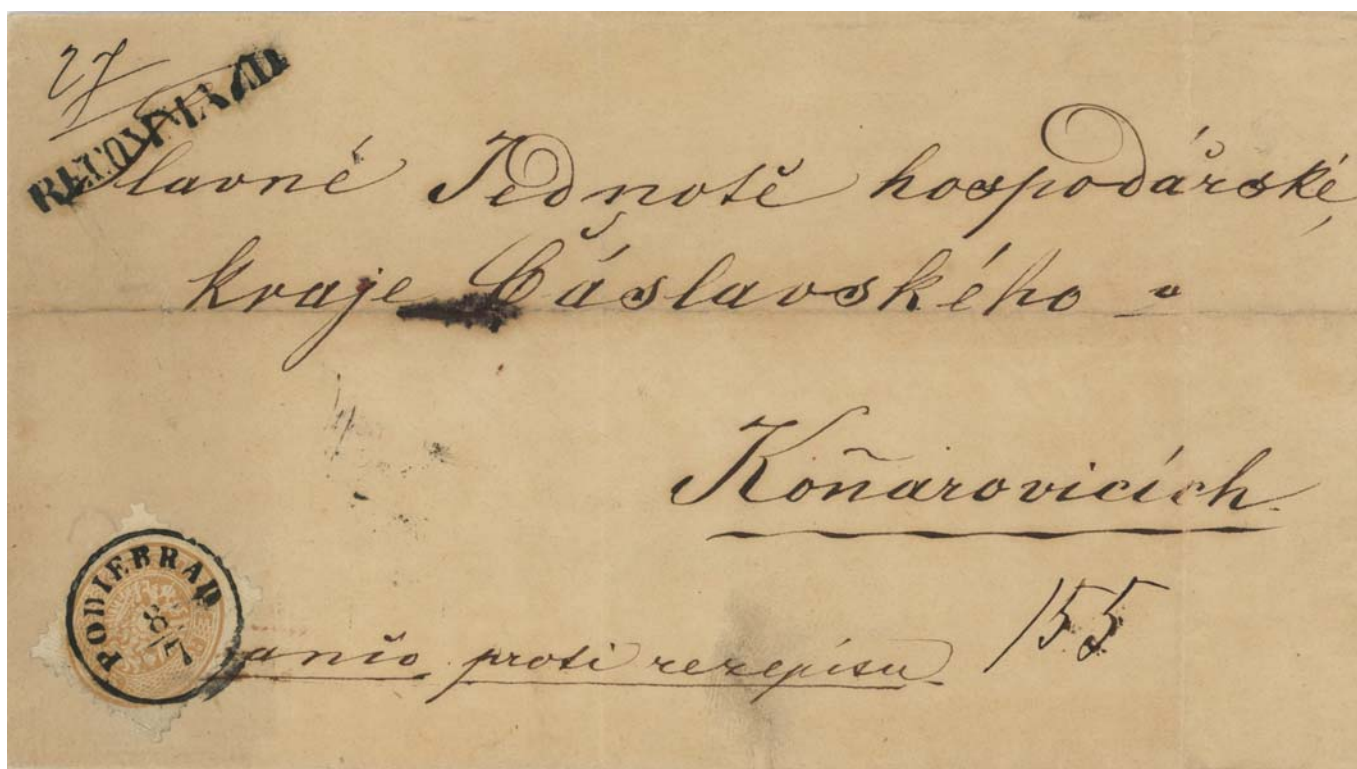 27
RECOMMAND
Slavné Jednotě hospodářské,
kraje Čáslavského
Koňarovicích
PODIEBRAD
8/7
proti rezepisu
155